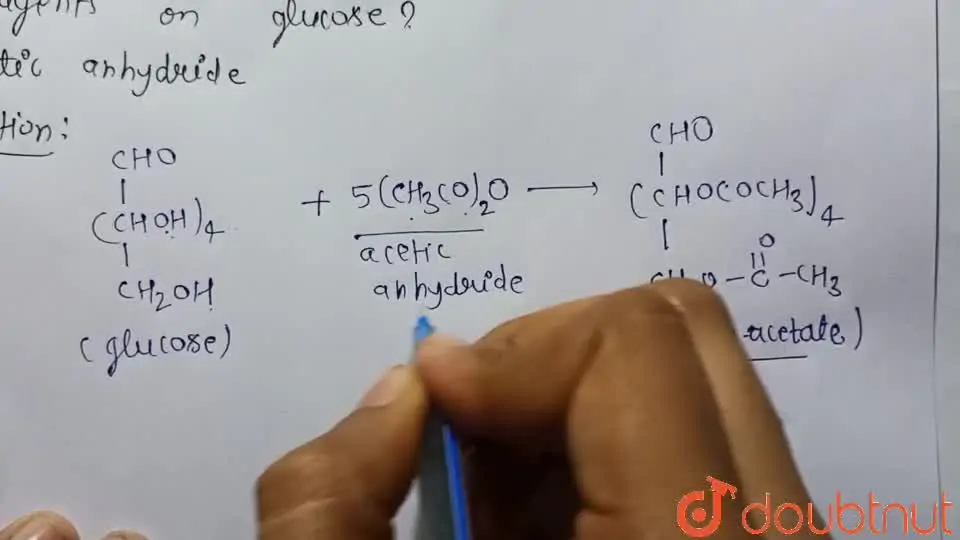 on glucose?
anhydride
CHO
(CHOH)4
CH2OH
(glucose)
+ 5(CH3CO)2O ⟶
acetic
anhydride
CHO
(CHOCOCH3)4
O
O-C-CH3
acetate)
doubtnut